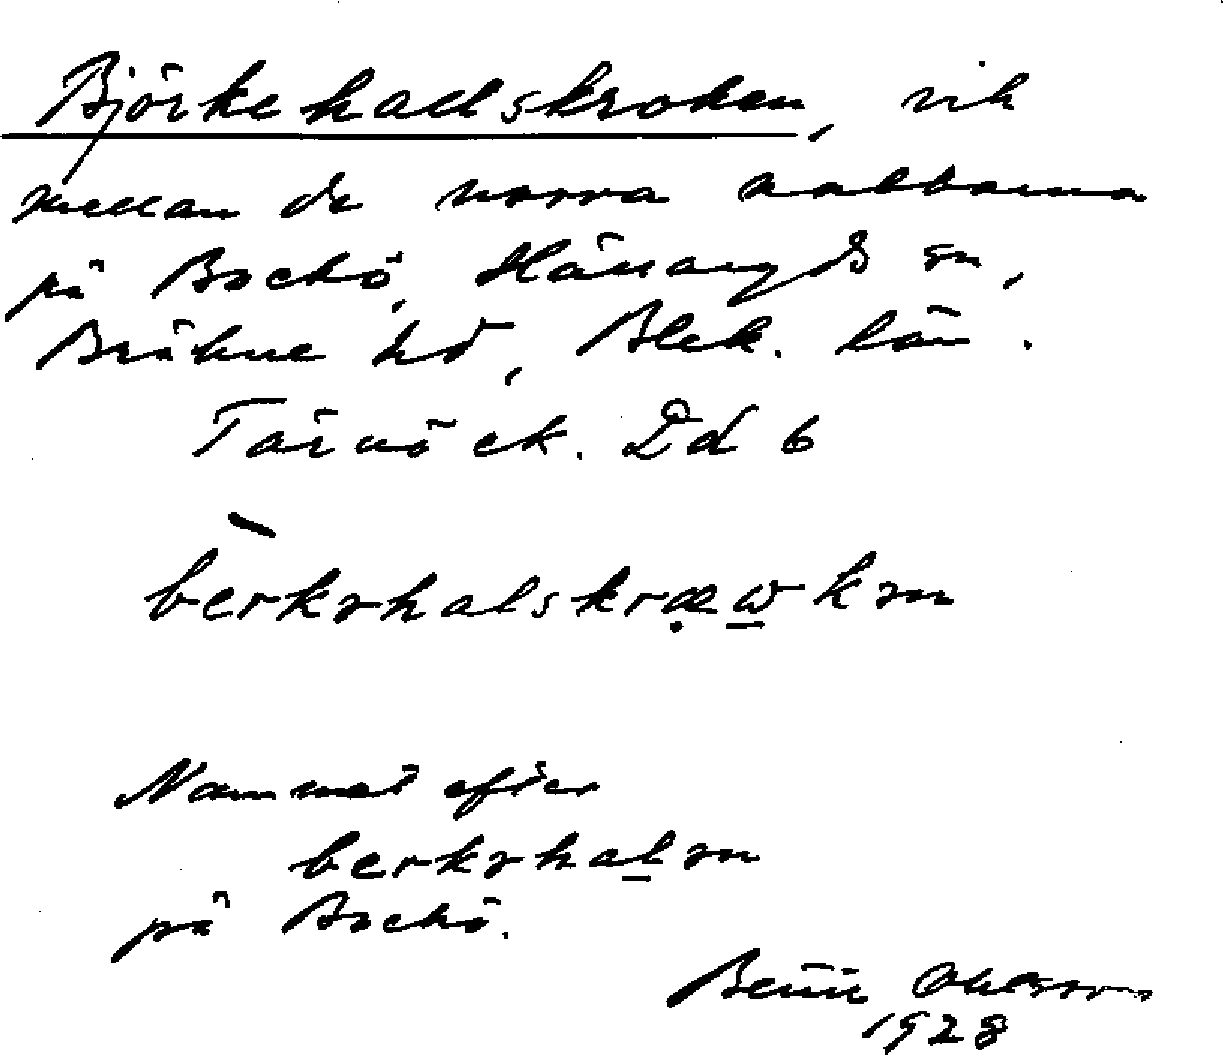 Björkehallskroken, vik
mellan de norra nabbarna
på Bockö, Hällaryds sn,
Bräkne hd, Blek. län.
Tärnö ek. Dd 6
berkəhalskræwkən
Namnet efter
berkəhalən
på Bockö.
Bertil Ohlsson
1928